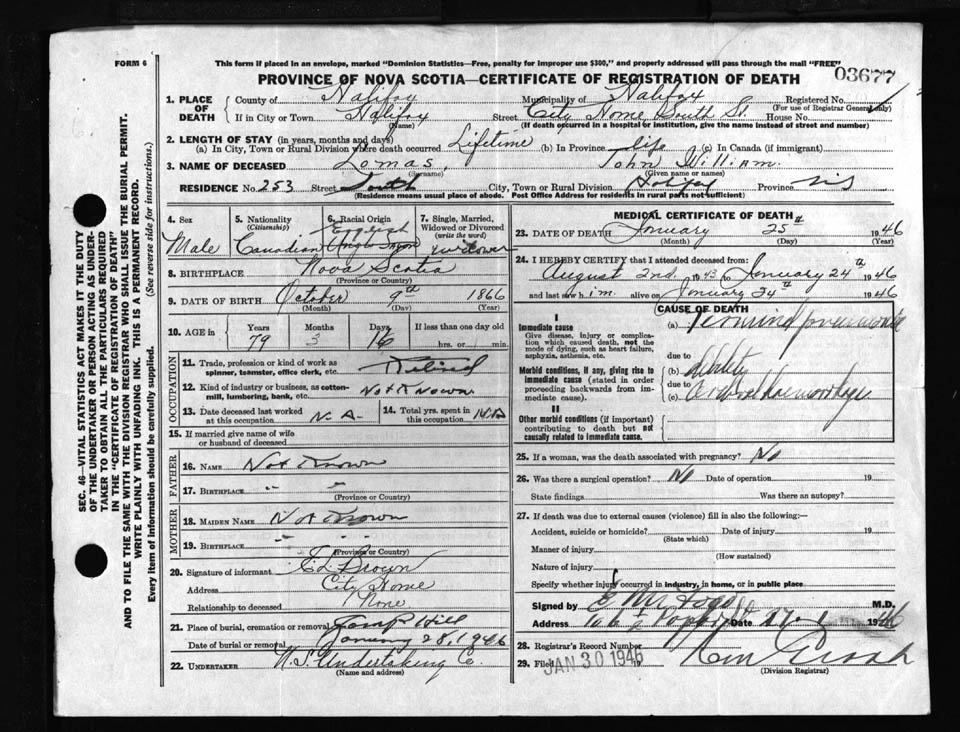 FORM 6
This form if placed in an envelope, marked "Dominion Statistics—Free, penalty for improper use $300," and properly addressed will pass through the mail "FREE"
PROVINCE OF NOVA SCOTIA—CERTIFICATE OF REGISTRATION OF DEATH
03677
1. PLACE OF DEATH
County of Halifax Municipality of Halifax Registered No.
(For use of Registrar General only)
If in City or Town Halifax Street City Home South St. House No.
(Name) (If death occurred in a hospital or institution, give the name instead of street and number)
2. LENGTH OF STAY (in years, months and days)
(a) In City, Town or Rural Division where death occurred Lifetime (b) In Province life (c) In Canada (if immigrant)
3. NAME OF DECEASED Lomas, John William
(Surname) (Given name or names)
RESIDENCE No. 253 Street South City, Town or Rural Division Halifax Province N.S
(Residence means usual place of abode. Post Office Address for residents in rural parts not sufficient)
4. Sex Male
5. Nationality (Citizenship) Canadian
6. Racial Origin English
7. Single, Married, Widowed or Divorced (write the word) Widower
8. BIRTHPLACE Nova Scotia
(Province or Country)
9. DATE OF BIRTH October 9th 1866
(Month) (Day) (Year)
10. AGE in Years Months Days If less than one day old
79 3 16 hrs. or min.
OCCUPATION
11. Trade, profession or kind of work as spinner, teamster, office clerk, etc. Retired
12. Kind of industry or business, as cotton-mill, lumbering, bank, etc. Not Known
13. Date deceased last worked at this occupation N.A.
14. Total yrs. spent in this occupation
15. If married give name of wife or husband of deceased
FATHER
16. NAME Not Known
17. BIRTHPLACE " "
(Province or Country)
MOTHER
18. MAIDEN NAME Not Known
19. BIRTHPLACE " "
(Province or Country)
20. Signature of informant Ed Brown
Address City Home
Relationship to deceased None
21. Place of burial, cremation or removal Camp Hill
Date of burial or removal January 28, 1946
22. UNDERTAKER N.S. Undertaking Co.
(Name and address)
MEDICAL CERTIFICATE OF DEATH
23. DATE OF DEATH January 25th 1946
(Month) (Day) (Year)
24. I HEREBY CERTIFY that I attended deceased from:
August 2nd 1943 to January 24th 1946
and last saw h im alive on January 24th 1946
CAUSE OF DEATH
I
Immediate cause
Give disease, injury or complication which caused death, not the mode of dying, such as heart failure, asphyxia, asthenia, etc.
(a) Terminal pneumonia
due to
Morbid conditions, if any, giving rise to immediate cause (stated in order proceeding backwards from immediate cause).
(b) debility
due to
(c) cerebral haemorrhage
II
Other morbid conditions (if important) contributing to death but not causally related to immediate cause.
25. If a woman, was the death associated with pregnancy? No
26. Was there a surgical operation? No Date of operation 19
State findings Was there an autopsy?
27. If death was due to external causes (violence) fill in also the following:—
Accident, suicide or homicide? Date of injury 19
(State which)
Manner of injury
(How sustained)
Nature of injury
Specify whether injury occurred in industry, in home, or in public place
Signed by M.D.
Address Date 27. 1 1946
28. Registrar's Record Number
29. Filed JAN 30 1946
(Division Registrar)
SEC. 46—VITAL STATISTICS ACT MAKES IT THE DUTY
OF THE UNDERTAKER OR PERSON ACTING AS UNDER-
TAKER TO OBTAIN ALL THE PARTICULARS REQUIRED
IN THE "CERTIFICATE OF REGISTRATION OF DEATH"
AND TO FILE THE SAME WITH THE DIVISION REGISTRAR WHO SHALL ISSUE THE BURIAL PERMIT.
WRITE PLAINLY WITH UNFADING INK. THIS IS A PERMANENT RECORD.
Every item of information should be carefully supplied. (See reverse side for instructions.)